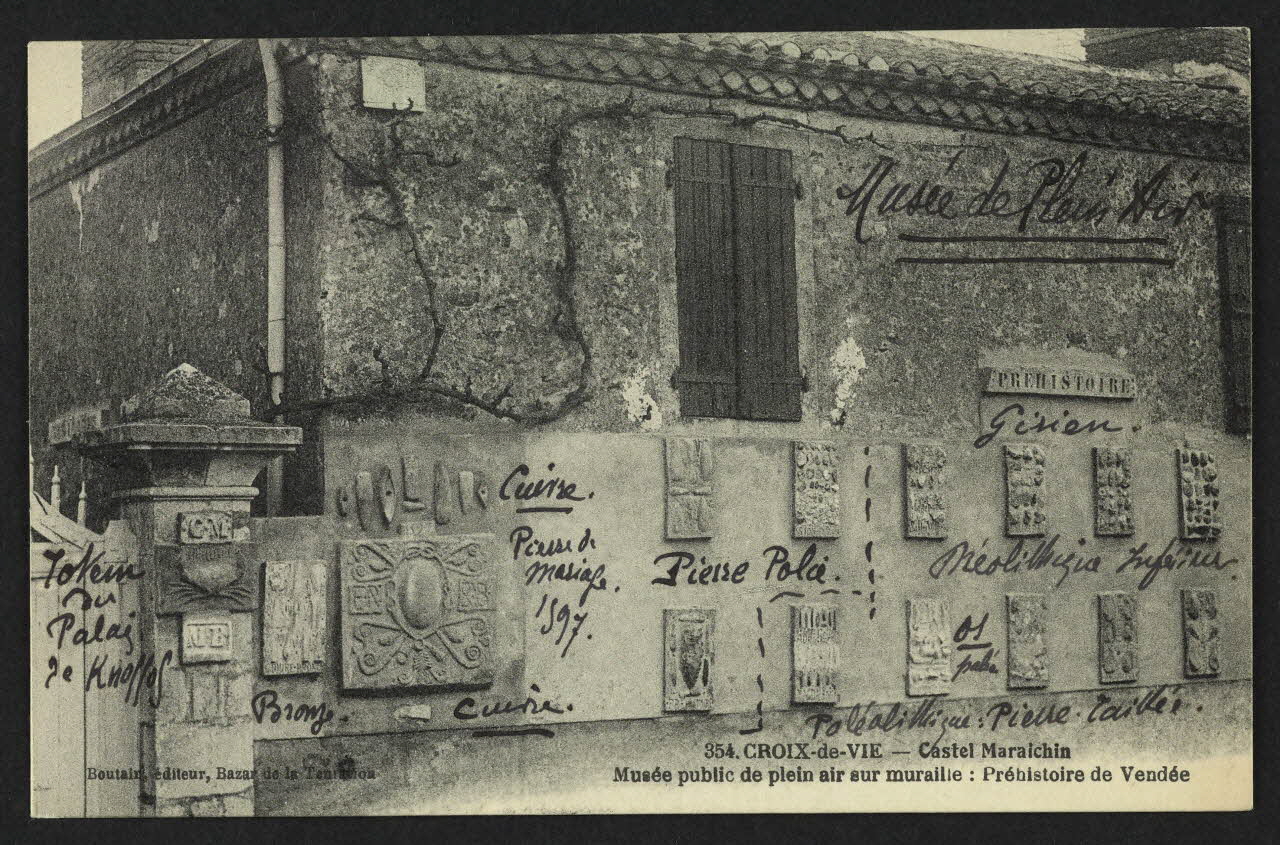 Musée de Plein Air
PRÉHISTOIRE
Gisien.
Cuivre.
Pierre de
mariage.
1597.
Pierre Polie.
Néolithique Inférieur.
C-M
Totem
du
Palais
de Knossos
M-B
Os
Bronze.
Cuivre.
Paléolithique : Pierre Taillée.
354. CROIX-de-VIE — Castel Maraichin
Boutain, éditeur, Bazar de la Tentation
Musée public de plein air sur muraille : Préhistoire de Vendée